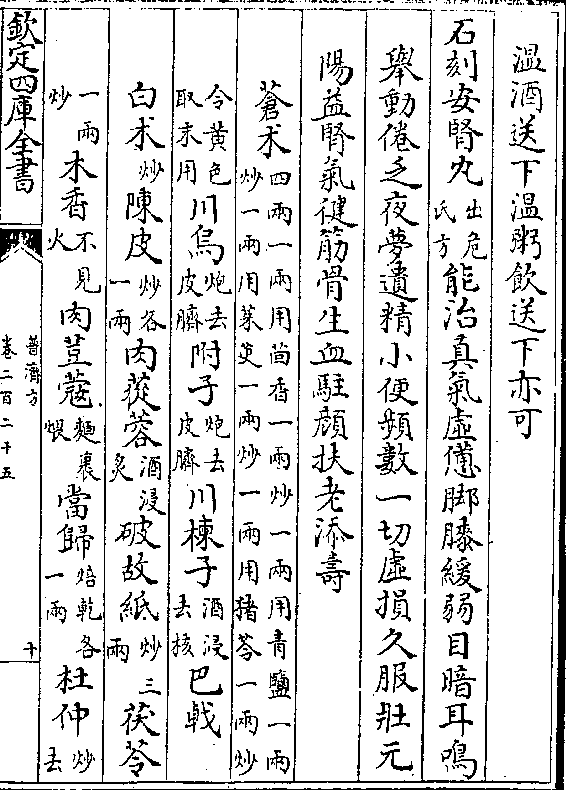 温酒送下温粥飲送下亦可
石刻安腎丸出危氏方能治真氣虛憊脚膝緩弱目暗耳鳴
舉動倦乏夜夢遺精小便頻數一切虛損久服壯元
陽益腎氣健筋骨生血駐顔扶老添壽
蒼术四兩一兩用茴香一兩炒一兩用青鹽一兩炒一兩用茱萸一兩炒一兩用猪苓一兩炒
令黄色取末用川烏炮去皮臍附子炮去皮臍川楝子酒浸去核巴戟
白术炒陳皮炒各一兩肉蓯蓉酒浸炙破故紙炒三兩茯苓
一兩炒木香不見火肉荳蔲麵裹煨當歸焙乾各一兩杜仲炒去
欽定四庫全書
普濟方
卷二百二十五
十